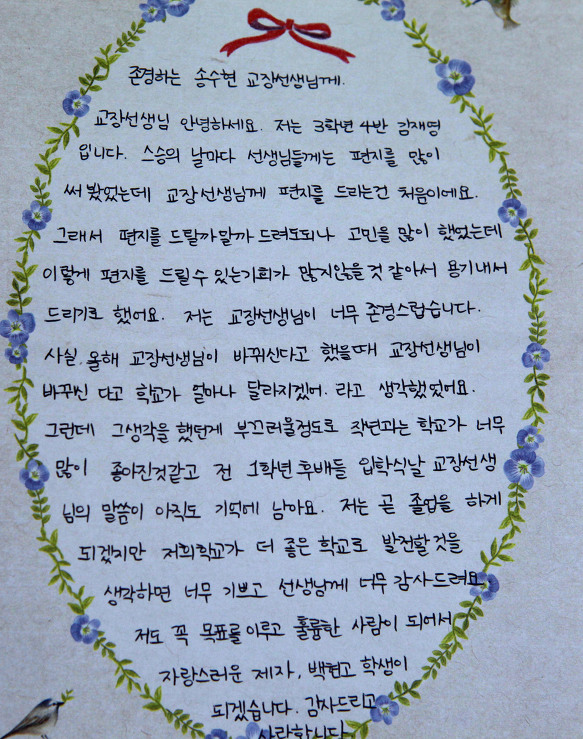 존경하는 송수현 교장선생님께.
교장선생님 안녕하세요. 저는 3학년 4반 김재영
입니다. 스승의 날마다 선생님들께는 편지를 많이
써 봤었는데 교장선생님께 편지를 드리는건 처음이에요.
그래서 편지를 드릴까말까 드려도되나 고민을 많이 했었는데
이렇게 편지를 드릴수 있는기회가 많지않을것 같아서 용기내서
드리기로 했어요. 저는 교장선생님이 너무 존경스럽습니다.
사실, 올해 교장선생님이 바뀌신다고 했을때 교장선생님이
바뀌신 다고 학교가 얼마나 달라지겠어. 라고 생각했었어요.
그런데 그생각을 했던게 부끄러울정도로 작년과는 학교가 너무
많이 좋아진것같고 전 1학년후배들 입학식날 교장선생
님의 말씀이 아직도 기억에 남아요. 저는 곧 졸업을 하게
되겠지만 저희학교가 더 좋은 학교로 발전할것을
생각하면 너무 기쁘고 선생님께 너무 감사드려요
저도 꼭 목표를이루고 훌륭한 사람이 되어서
자랑스러운 제자, 백현고 학생이
되겠습니다. 감사드리고
사랑합니다